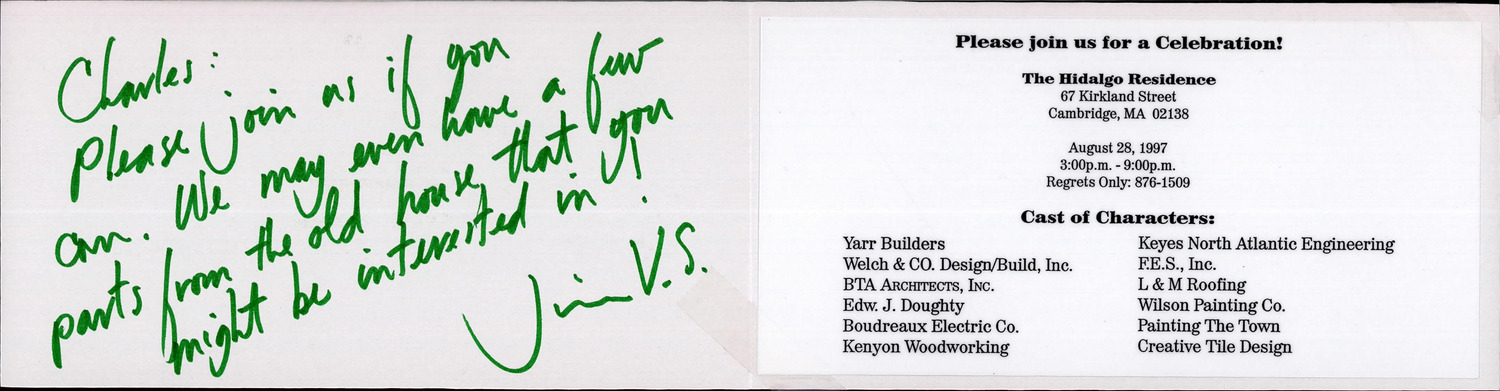 Charles:
please join us if you
can. We may even have a few
parts from the old house that you
might be interested in!
Jim V.S.
Please join us for a Celebration!
The Hidalgo Residence
67 Kirkland Street
Cambridge, MA 02138
August 28, 1997
3:00p.m. - 9:00p.m.
Regrets Only: 876-1509
Cast of Characters:
Yarr Builders
Welch & CO. Design/Build, Inc.
BTA ARCHITECTS, INC.
Edw. J. Doughty
Boudreaux Electric Co.
Kenyon Woodworking
Keyes North Atlantic Engineering
F.E.S., Inc.
L & M Roofing
Wilson Painting Co.
Painting The Town
Creative Tile Design